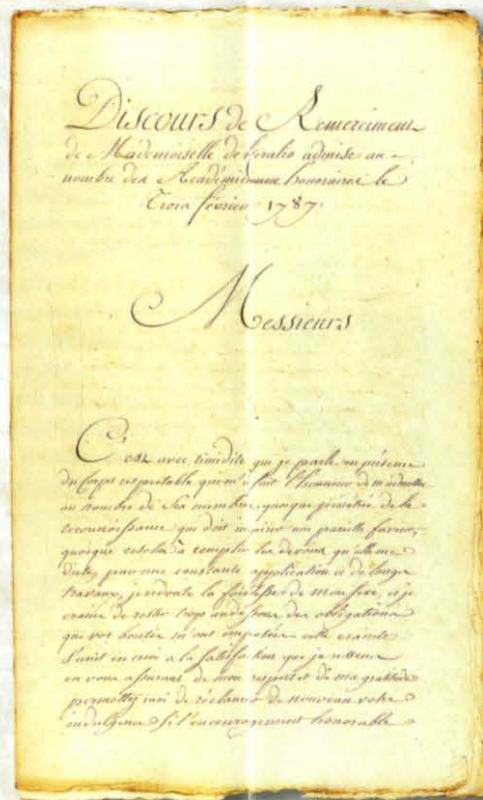 Discours de Remerciment
de Mademoiselle de Keralio admise au
nombre des Académiciens honoraires le
Trois fevrier 1787.
Messieurs
C'est avec timidité que je parle en présence
du Corps respectable qui m'a fait l'honneur de m'admettre
au nombre de ses membres, quoique pénétrée de la
reconnoissance que doit une pareille faveur,
quoique à remplir les devoirs qu'elle me
dicte, par une constante application et de longs
travaux, je redoute la foiblesse de mon sexe, et je
crains de rester trop au dessous des obligations
que vos bontés m'ont imposées cette crainte
s'unit en moi à la satisfaction que je
en vous assurant de mon respect et de ma gratitude
permettez moi de réclamer de nouveau votre
indulgence si l'encouragement honorable